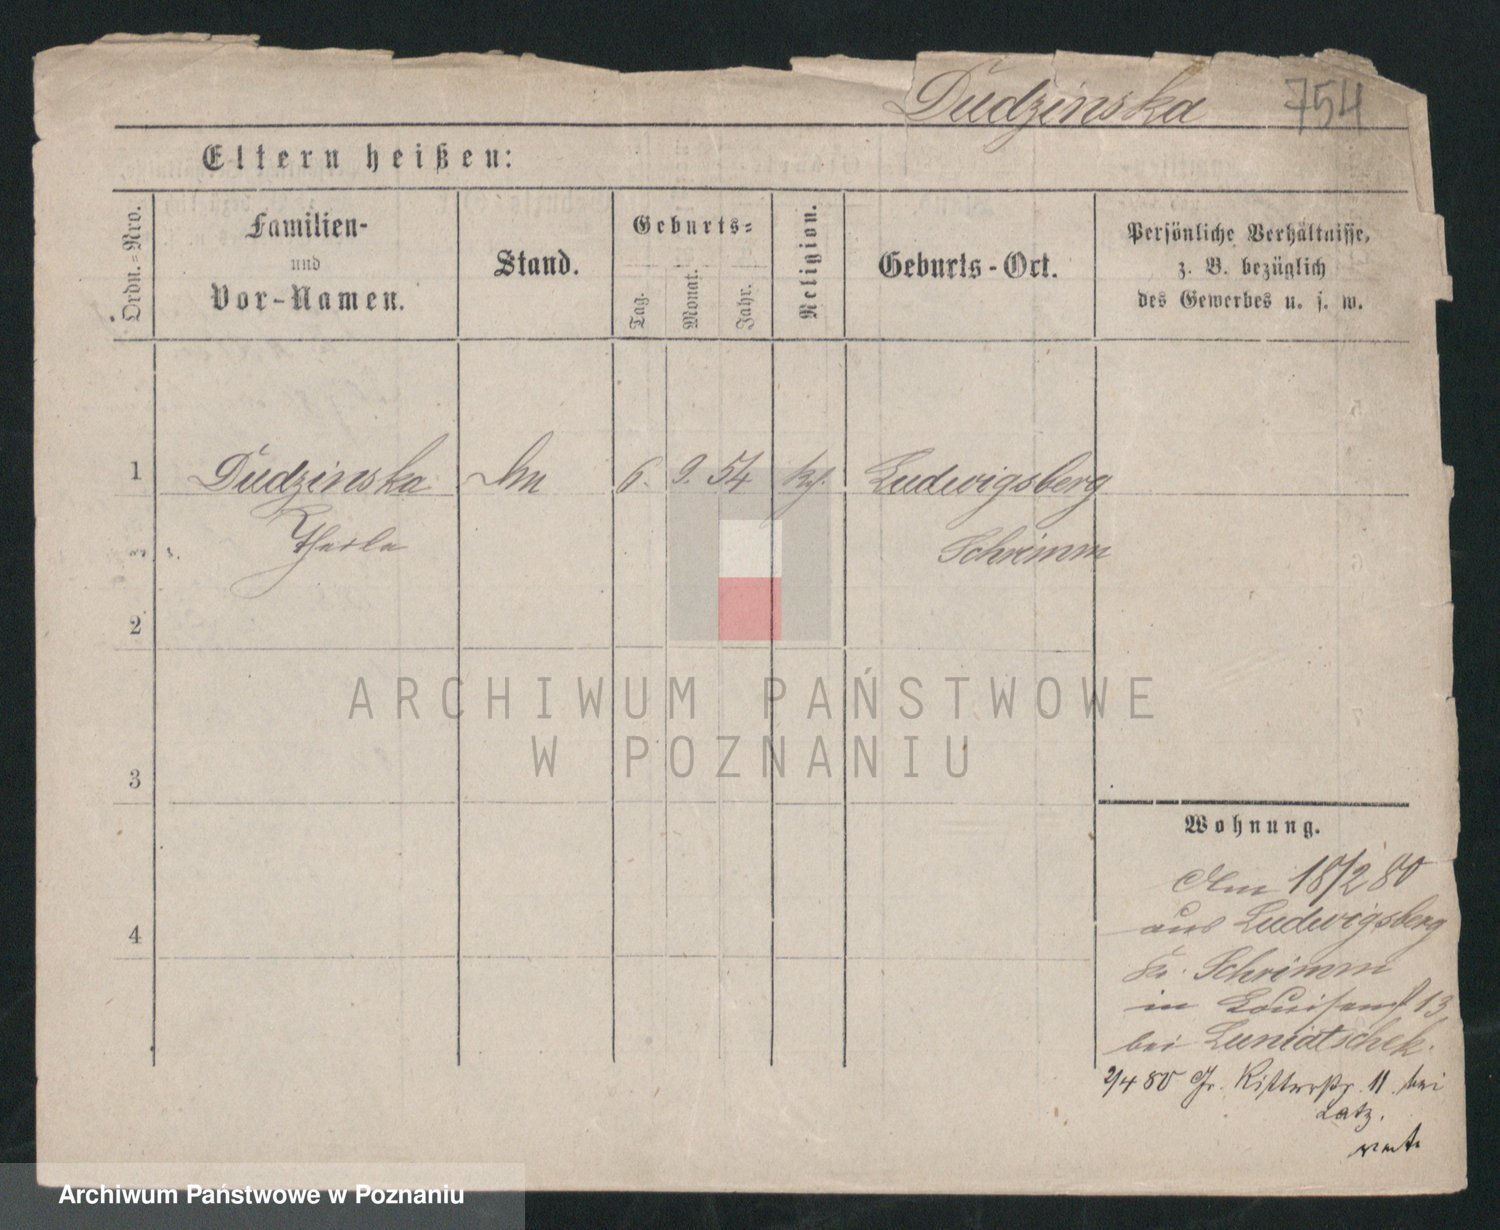 Dudzinska 754
Eltern heißen:
Ordn.=Nro.
Familien-
und
Vor-Namen.
Stand.
Geburts=
Tag.
Monat.
Jahr.
Religion.
Geburts-Ort.
Persönliche Verhältnisse,
z. B. bezüglich
des Gewerbes u. s. w.
1 Dudzinska 6. 9. 54 Ludwigsberg
Schrimm
2
3
4
Wohnung.
Am 18/2 80
aus Ludwigsberg
Kr. Schrimm
in Louisenst 13
bei
2/4 80 Gr. Ritterstr. 11 bei
Latz.
ARCHIWUM PAŃSTWOWE
W POZNANIU
Archiwum Państwowe w Poznaniu